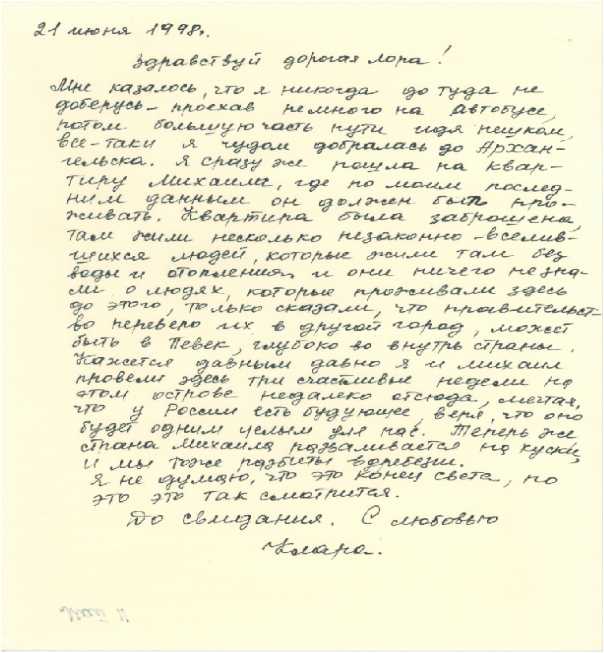 21 июня 1998г.
Здравствуй дорогая Лора!
Мне казалось, что я никогда до туда не
доберусь - проехав немного на автобусе,
потом большую часть пути идя пешком,
все-таки я чудом добралась до Архан-
гельска. Я сразу же пошла на квар-
тиру Михаила, где по моим послед-
ним данным он должен быть про-
живать. Квартира была заброшена,
там жили несколько незаконно-вселив-
шихся людей, которые жили там без
воды и отопления и они ничего не зна-
ли о людях, которые проживали здесь
до этого, только сказали, что правительст-
во перевело их в другой город, может
быть в Певек, глубоко во внутрь страны.
Кажется давным давно я и Михаил
провели здесь три счастливые недели на
этом острове недалеко отсюда, мечтая,
что у России есть будующее, веря, что оно
будет одним целым для нас. Теперь же
страна Михаила разваливается на куски,
и мы тоже разбиты вдребезги.
Я не думаю, что это конец света, но
это это так смотрится.
До свидания. С любовью
Клара.